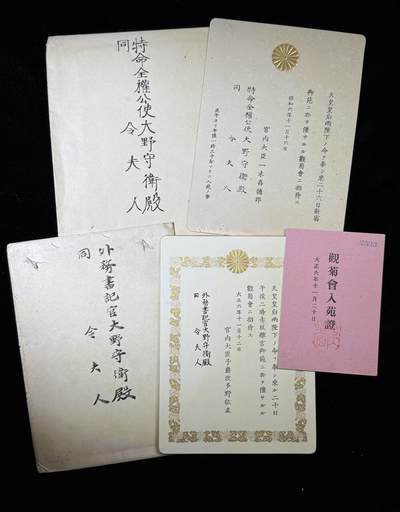 特命全權公使大野守衛殿
同 令夫人
天皇皇后兩陛下ノ命ヲ奉シ來二十六日新宿
御苑ニ於テ催サルル觀菊會ニ招待ス
昭和六年十一月十六日
宮内大臣一木喜德郎
特命全權公使大野守衛殿
同 令夫人
外務書記官大野守衛殿
同 令夫人
天皇皇后兩陛下ノ命ヲ奉シ來ル二十日
午後二時赤坂離宮御苑ニ於テ催サルル
觀菊會ニ招待ス
大正六年十一月十二日
宮内大臣子爵波多野敬直
外務書記官大野守衛殿
同 令夫人
觀菊會入苑證
大正六年十一月二十日